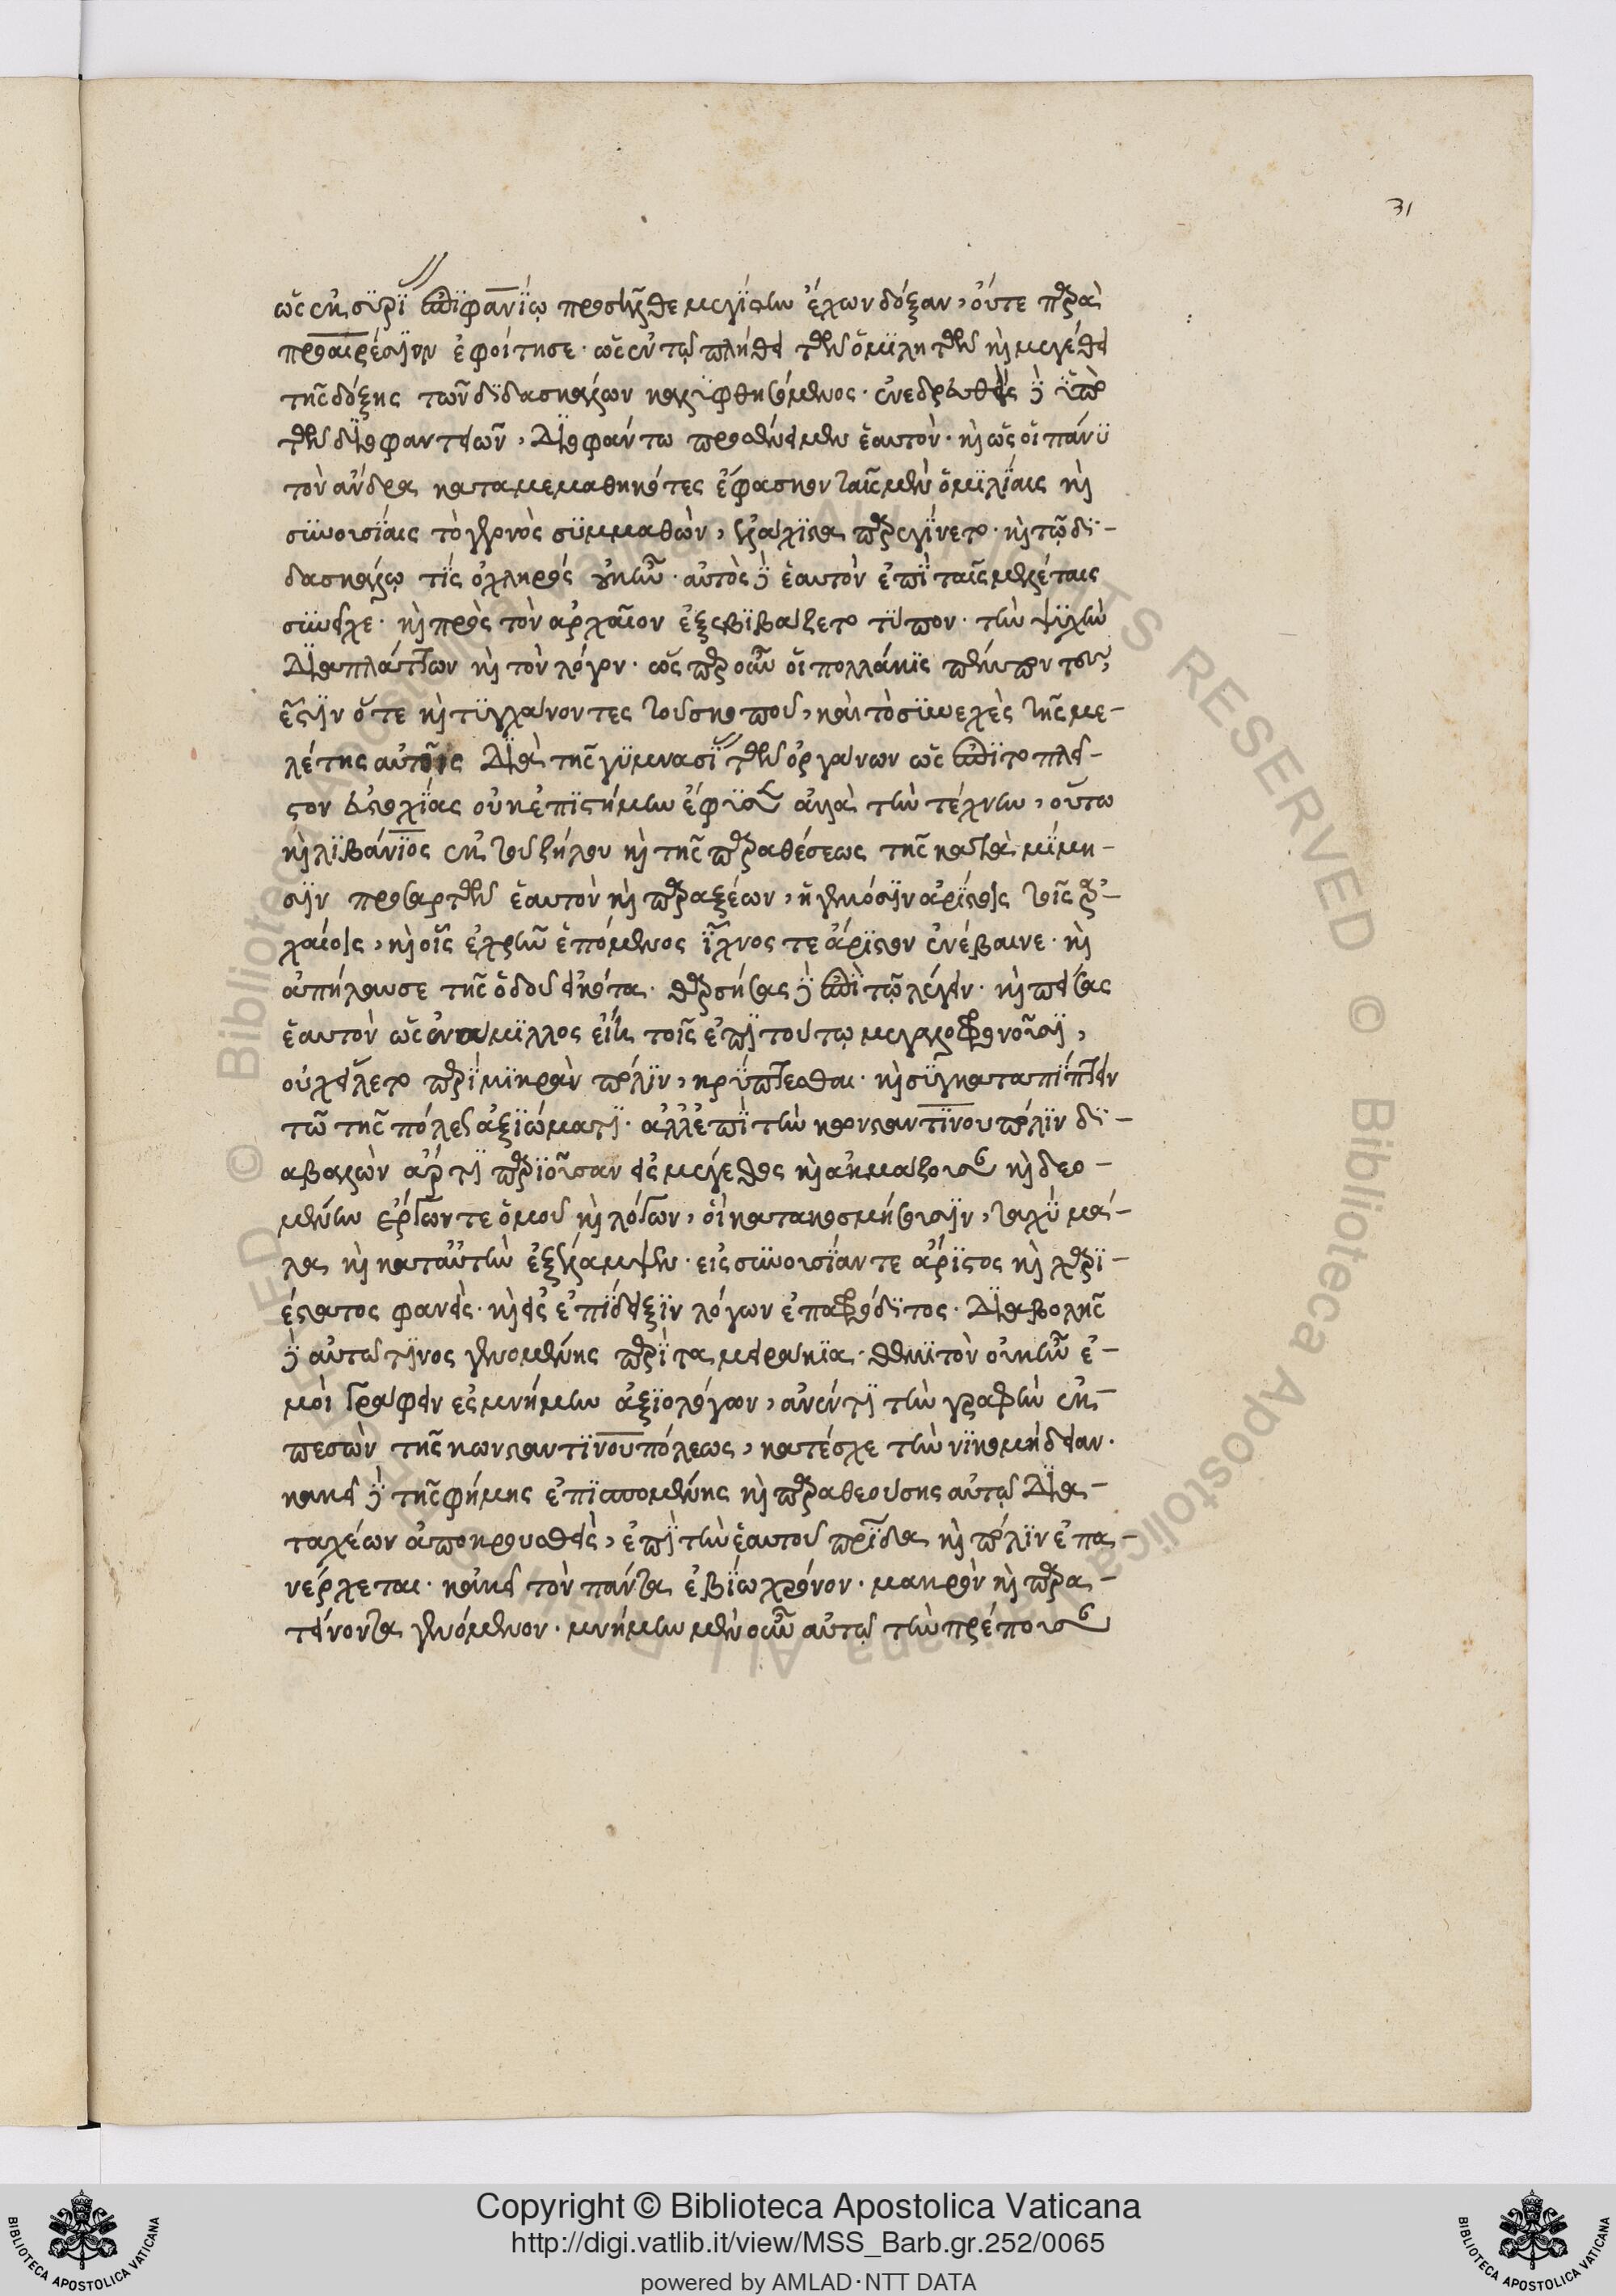 31
ὡς ἐκ συρίας ἐπιφανίῳ προσῆλθε μεγίστην ἔχων δόξαν, οὔτε παρὰ
προαιρέσιον ἐφοίτησε· ὡς ἐν τῷ πλήθει τῶν ὁμιλητῶν καὶ μεγέθει
τῆς δόξης τῶν διδασκάλων καλυφθησόμενος· ἐνεδρευθεὶς δὲ ὑπὸ
τῶν διοφαντείων, διοφάντω προσένειμεν ἑαυτόν· καὶ ὡς οἱ πάνυ
τὸν ἄνδρα καταμεμαθηκότες ἔφασκον ταῖς μὲν ὁμιλίαις καὶ
συνουσίαις τὸ γεγονὸς συμμαθὼν, ἐλάχιστα παρεγίνετο· καὶ τῷ δι-
δασκάλῳ τίς ὀχληρός οὐκ ἦν· αὐτὸς δὲ ἑαυτὸν ἐπὶ ταῖς μελέταις
συνεῖχε· καὶ πρὸς τὸν ἀρχαῖον ἐξεβιβάζετο τύπον· τὴν ψυχὴν
διαπλάττων καὶ τὸν λόγον· ὡς παρ οὖν οἱ πολλάκις πέμποντες,
ἔστιν ὅτε καὶ τυγχάνοντες τοῦ σκοποῦ, καὶ τὸ συνεχὲς τῆς με-
λέτης αὐτοῖς διὰ τῆς γυμνασίας τῶν ὀργάνων ὡς ἐπὶ το πλεῖ-
στον εὐστοχίας οὐκ ἐπιστήμην ἔφυσεν ἀλλὰ τὴν τέχνην, οὕτω
καὶ λιβάνιος ἐκ τοῦ ζήλου καὶ τῆς παραθέσεως τῆς κατὰ μίμη-
σιν προσαρτῶν ἑαυτὸν καὶ παραξέων, ἡγεμόσιν ἀρίστοις τοῖς ἀρ-
χαίοις, καὶ οἷς ἐχρῆν ἑπόμενος ἴχνος τε ἄριστον ἐνέβαινε· καὶ
ἀπήλαυσε τῆς ὁδοῦ εἰκότα· θαρσήσας δὲ ἐπὶ τῷ λέγειν· καὶ πείσας
ἑαυτὸν ὡς ἐναμιλλος εἴη τοῖς ἐπὶ τούτῳ μεγαλοφρονοῦσι,
οὐχ εἵλετο περὶ μικρὰν πόλιν, κρύπτεσθαι· καὶ συγκαταπίπτειν
τῶ τῆς πόλεως ἀξιώματι· ἀλλ ἐπὶ τὴν κονσταντίνου πόλιν δι-
αβαλὼν ἄρτι παριοῦσαν εἰς μέγεθος καὶ ἀκμάζουσαν καὶ δεο-
μένην ἔργων τε ὁμοῦ καὶ λόγων, οἳ κατακοσμήσουσιν, ταχὺ μά-
λα καὶ κατ αὐτὴν ἐξέλαμψεν· εἰς συνουσίαν τε ἄριστος καὶ χαρι-
έστατος φανείς· καὶ εἰς ἐπίδειξιν λόγων ἐπαφρόδιτος· διαβολῆς
δὲ αὐτῶ τινος γενομένης περὶ τα μειράκια· θεμιτὸν οὐκ ἦν ἐ-
μοὶ γράφειν ἐς μνήμην ἀξιολόγων, ἀνέντι τὴν γραφὴν ἐκ-
πεσὼν τῆς κωνσταντινουπόλεως, κατέσχε τὴν νικομήδειαν·
κακεῖ δὲ τῆς φήμης ἐπισπομένης καὶ παραθεούσης αὐτῷ διὰ
ταχέων ἀποκρουσθεὶς, ἐπὶ τὴν ἑαυτοῦ πατρίδα καὶ πόλιν ἐπα-
νέρχεται· κἀκεῖ τὸν πάντα ἐβίω χρόνον· μακρὸν καὶ παρα-
τείνοντα γενόμενον· μνήμην μὲν οὖν αὐτῷ τὴν πρέπουσαν
Copyright © Biblioteca Apostolica Vaticana
http://digi.vatlib.it/view/MSS_Barb.gr.252/0065
powered by AMLAD·NTT DATA
BIBLIOTECA APOSTOLICA VATICANA
BIBLIOTECA APOSTOLICA VATICANA